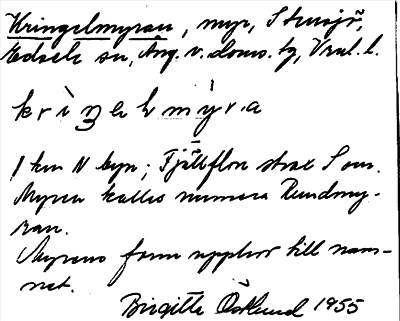 Kringelmyran, myr, Stensjö,
Edsele sn, Ång. v. doms. tg, Vnal. l.
krìŋelmỳra
1 km N byn; Fjällflon strax S om.
Myren kallas numera Rundmy-
ran.
Myrens form upphov till nam-
net.
Birgitta Östlund 1955